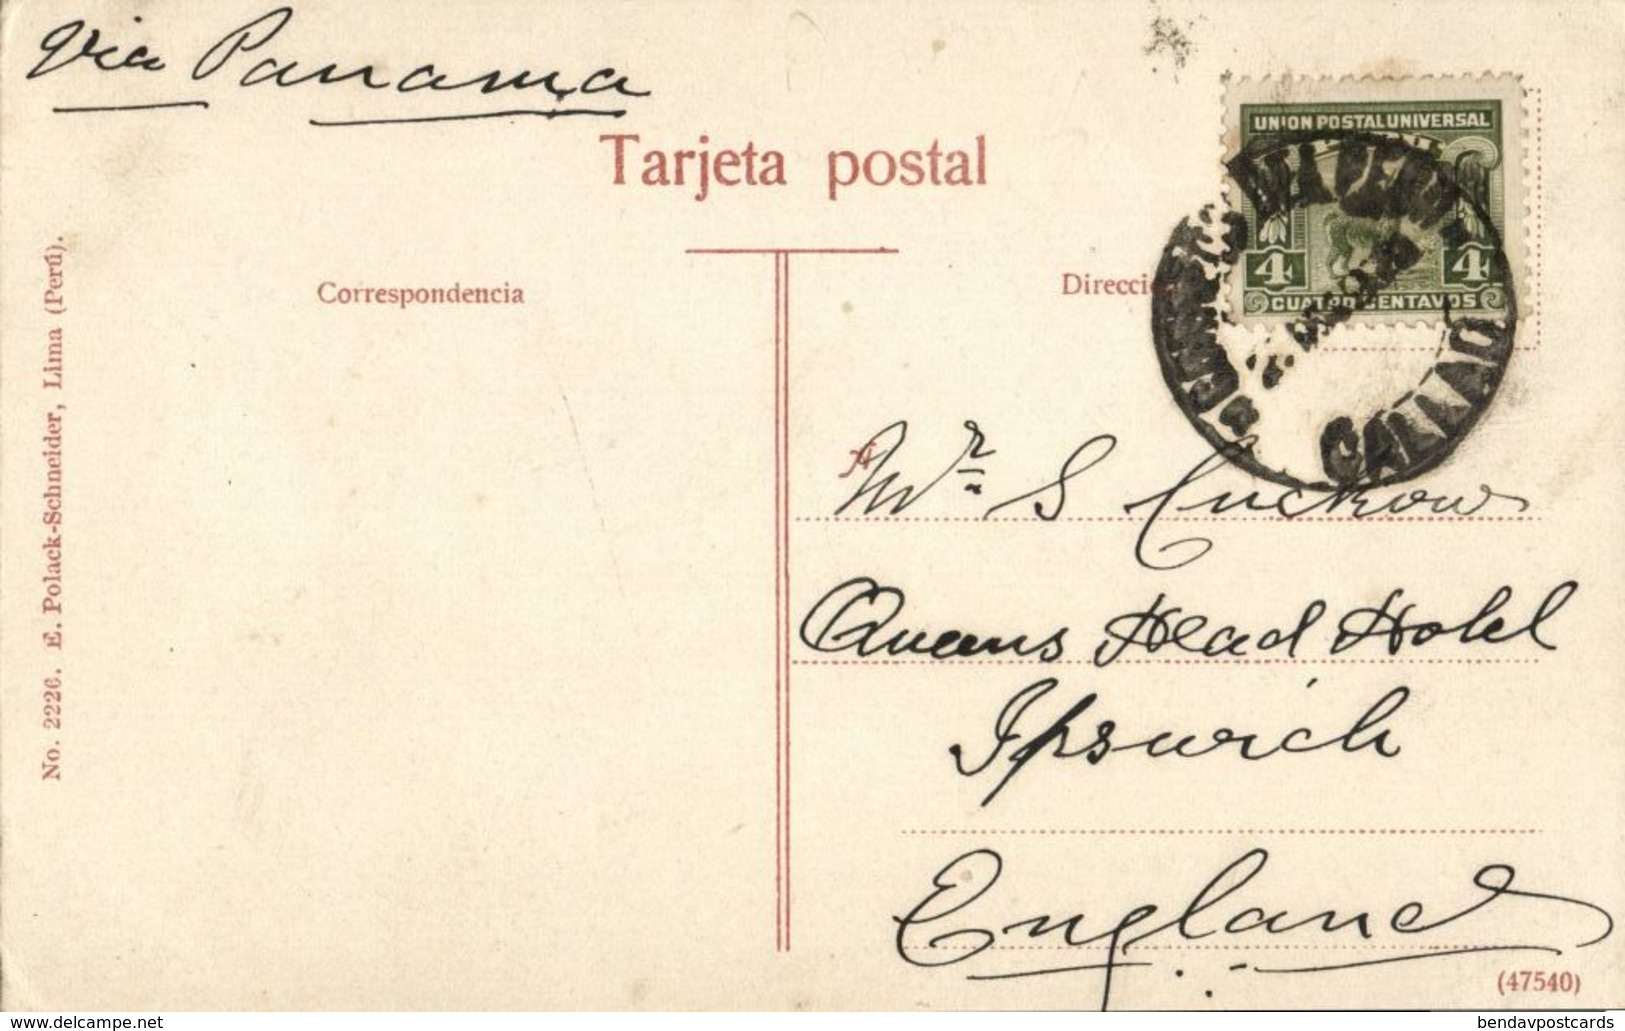 Via Panama
Tarjeta postal
UNION POSTAL UNIVERSAL
4 4
CUATRO CENTAVOS
CALLAO
Correspondencia
Direcci
No. 2226. E. Polack-Schneider, Lima (Perú).
A
Mr S Cuckow
Queens Head Hotel
Ipswich
England
(47540)
www.delcampe.net
bendavpostcards